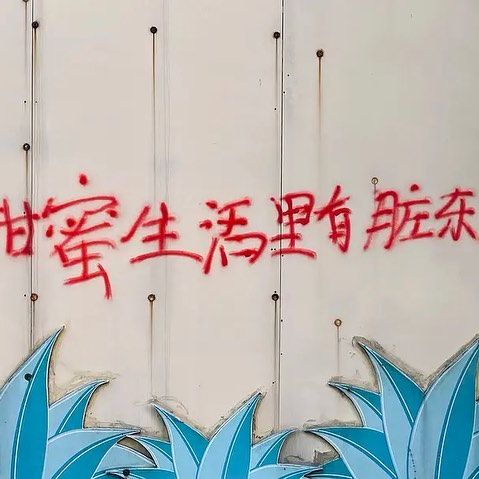 甜蜜生活里有脏东